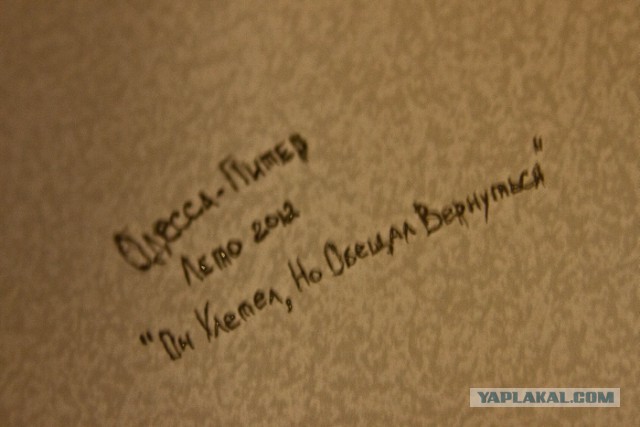 Одесса-Питер
Лето 2012
"Он Улетел, Но Обещал Вернуться"
YAPLAKAL.COM